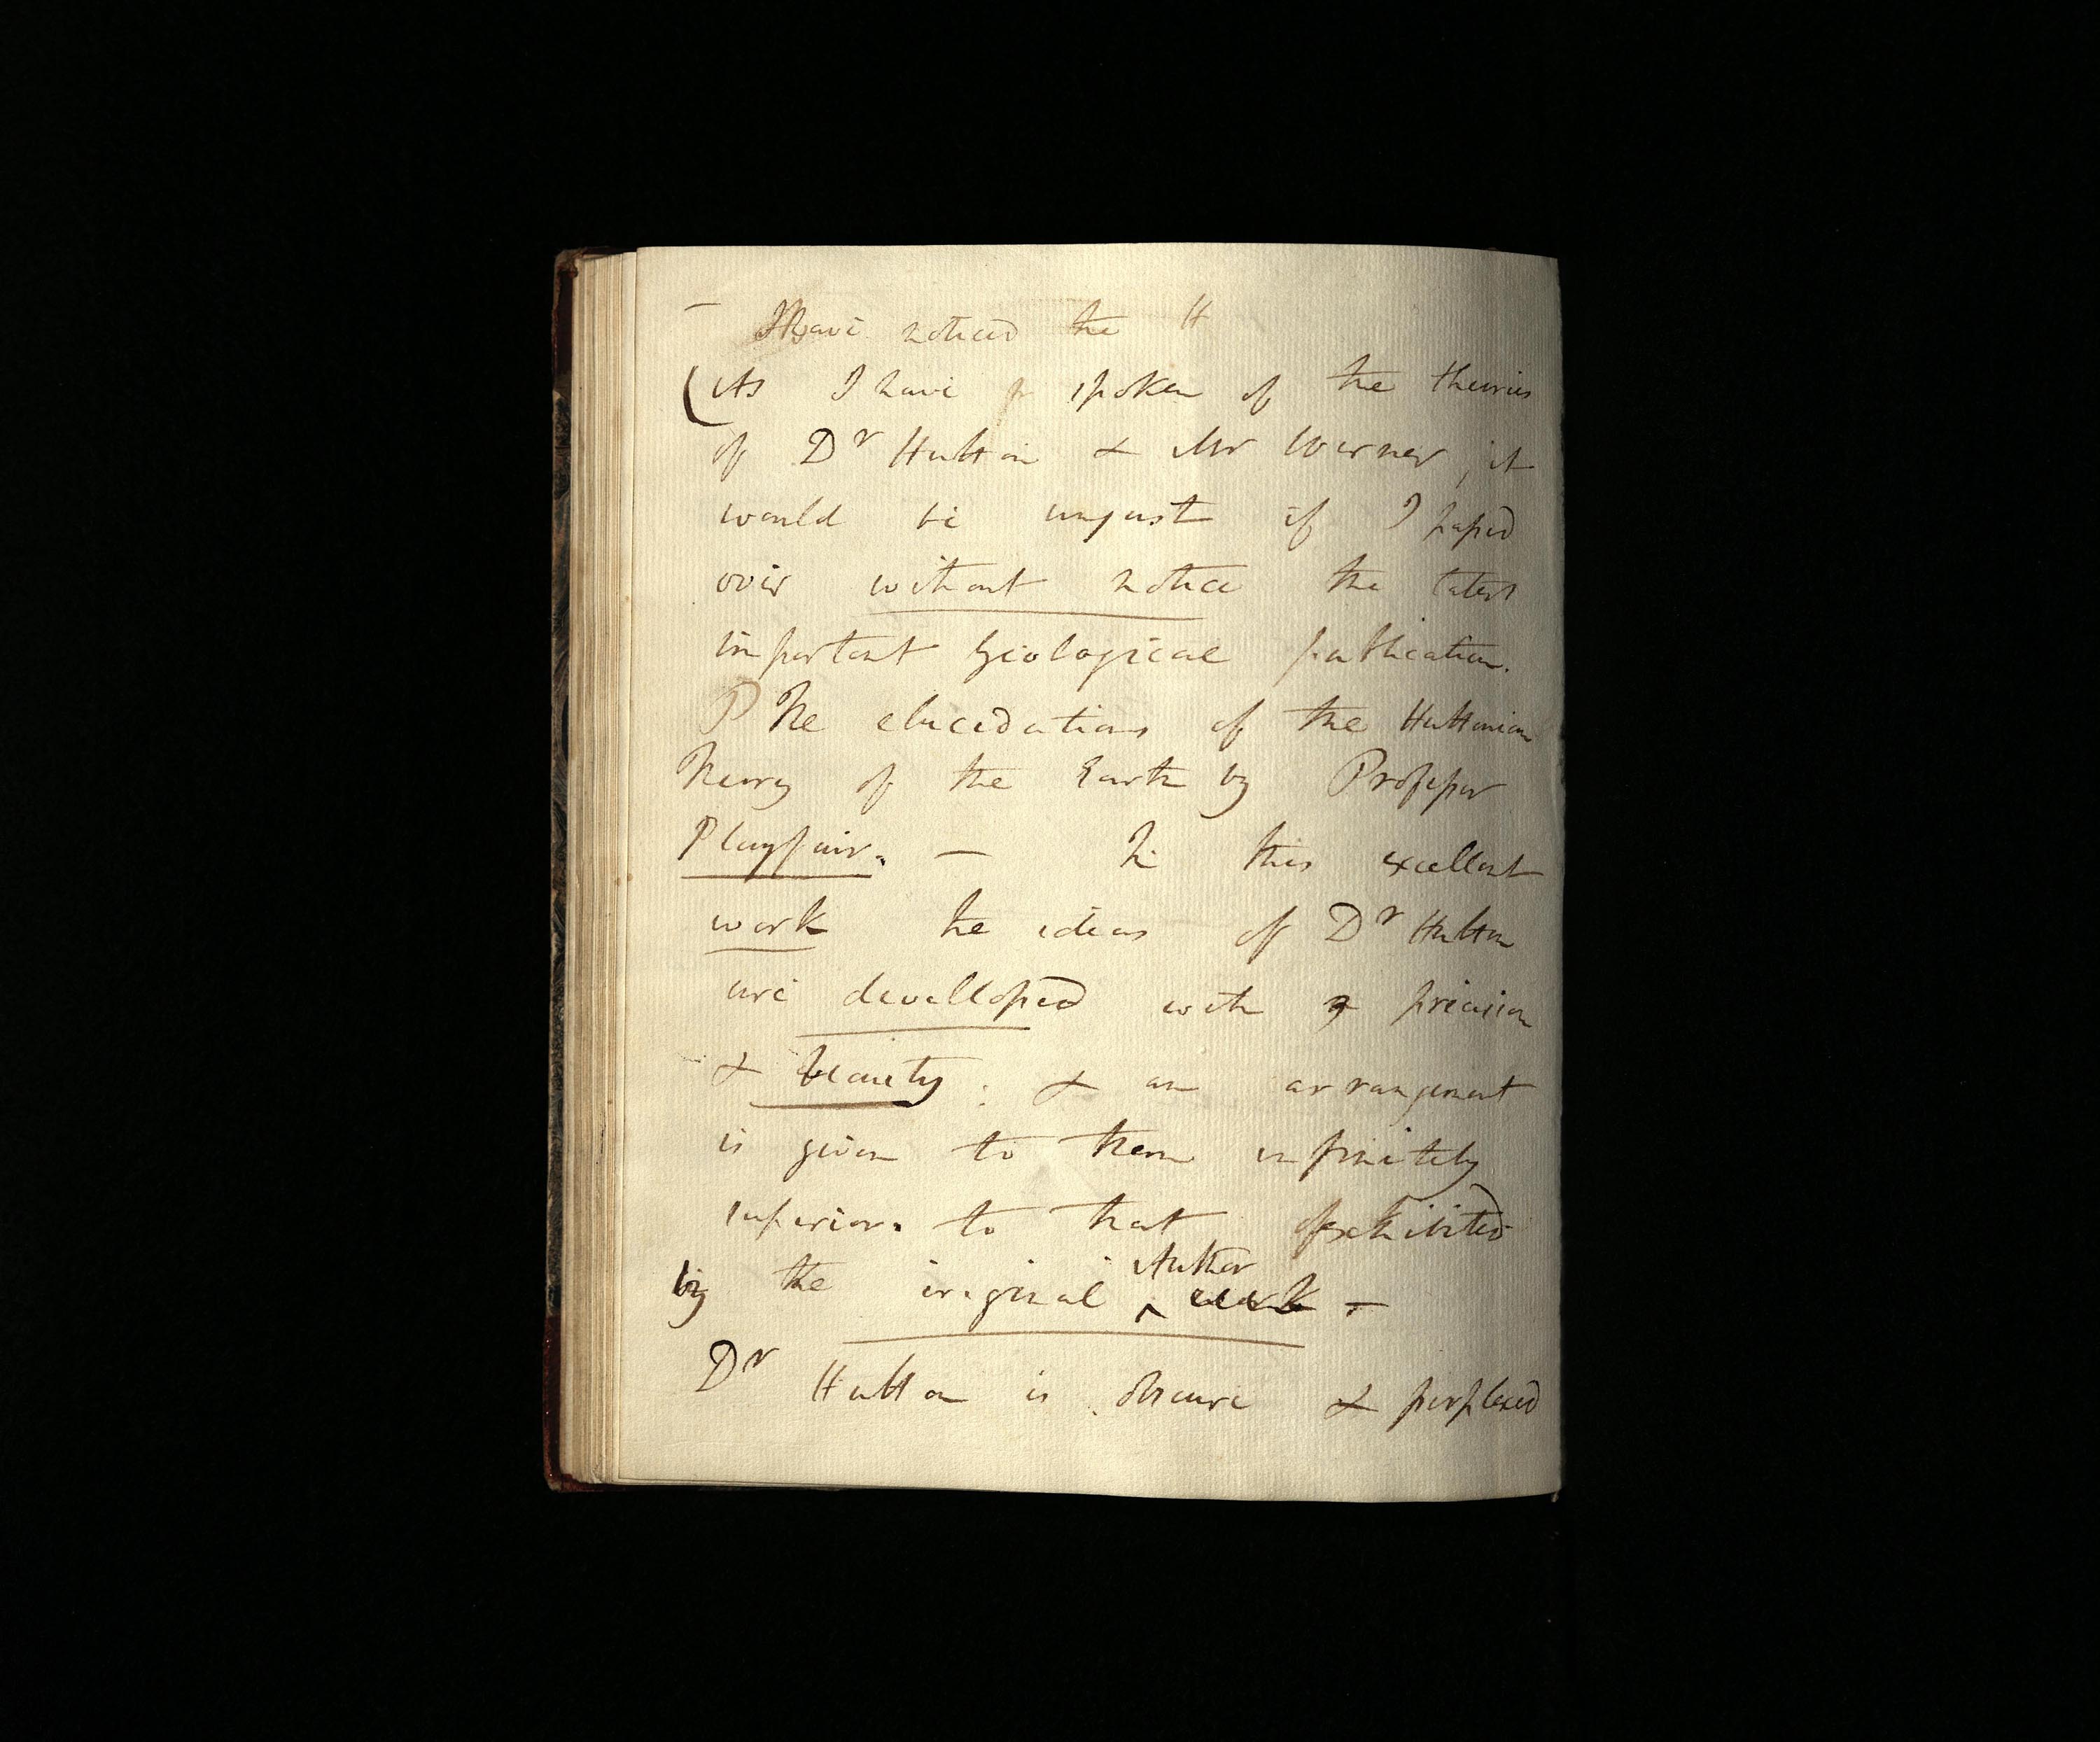 — I have noticed the H
(As I have spoken of the theories
of Dr Hutton & Mr Werner, it
would be unjust if I passed
over without notice the latest
important Geological publication.
The elucidations of the Huttonian
Theory of the Earth by Professor
Playfair. — In this excellent
work the ideas of Dr Hutton
are developped with precision
& beauty; & an arrangement
is given to them infinitely
superior to that exhibited
by the original Author work —
Dr Hutton is obscure & perplexed